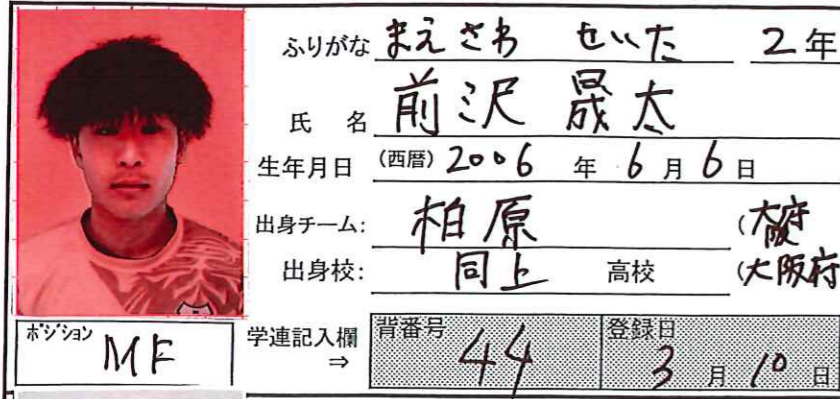 ふりがな まえさわ せいた 2年
氏 名 前沢 晟太
生年月日 (西暦) 2006 年 6月 6日
出身チーム: 柏原 (大阪府
出身校: 同上 高校 (大阪府
ポジション MF
学連記入欄 ⇒ 背番号 44 登録日 3月 10日